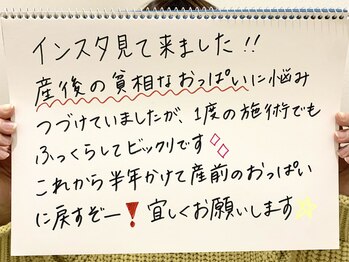 インスタ見て来ました!!
産後の貧相なおっぱいに悩み
つづけていましたが、1度の施術でも
ふっくらしてビックリです
これから半年かけて産前のおっぱい
に戻すぞー❗宜しくお願いします